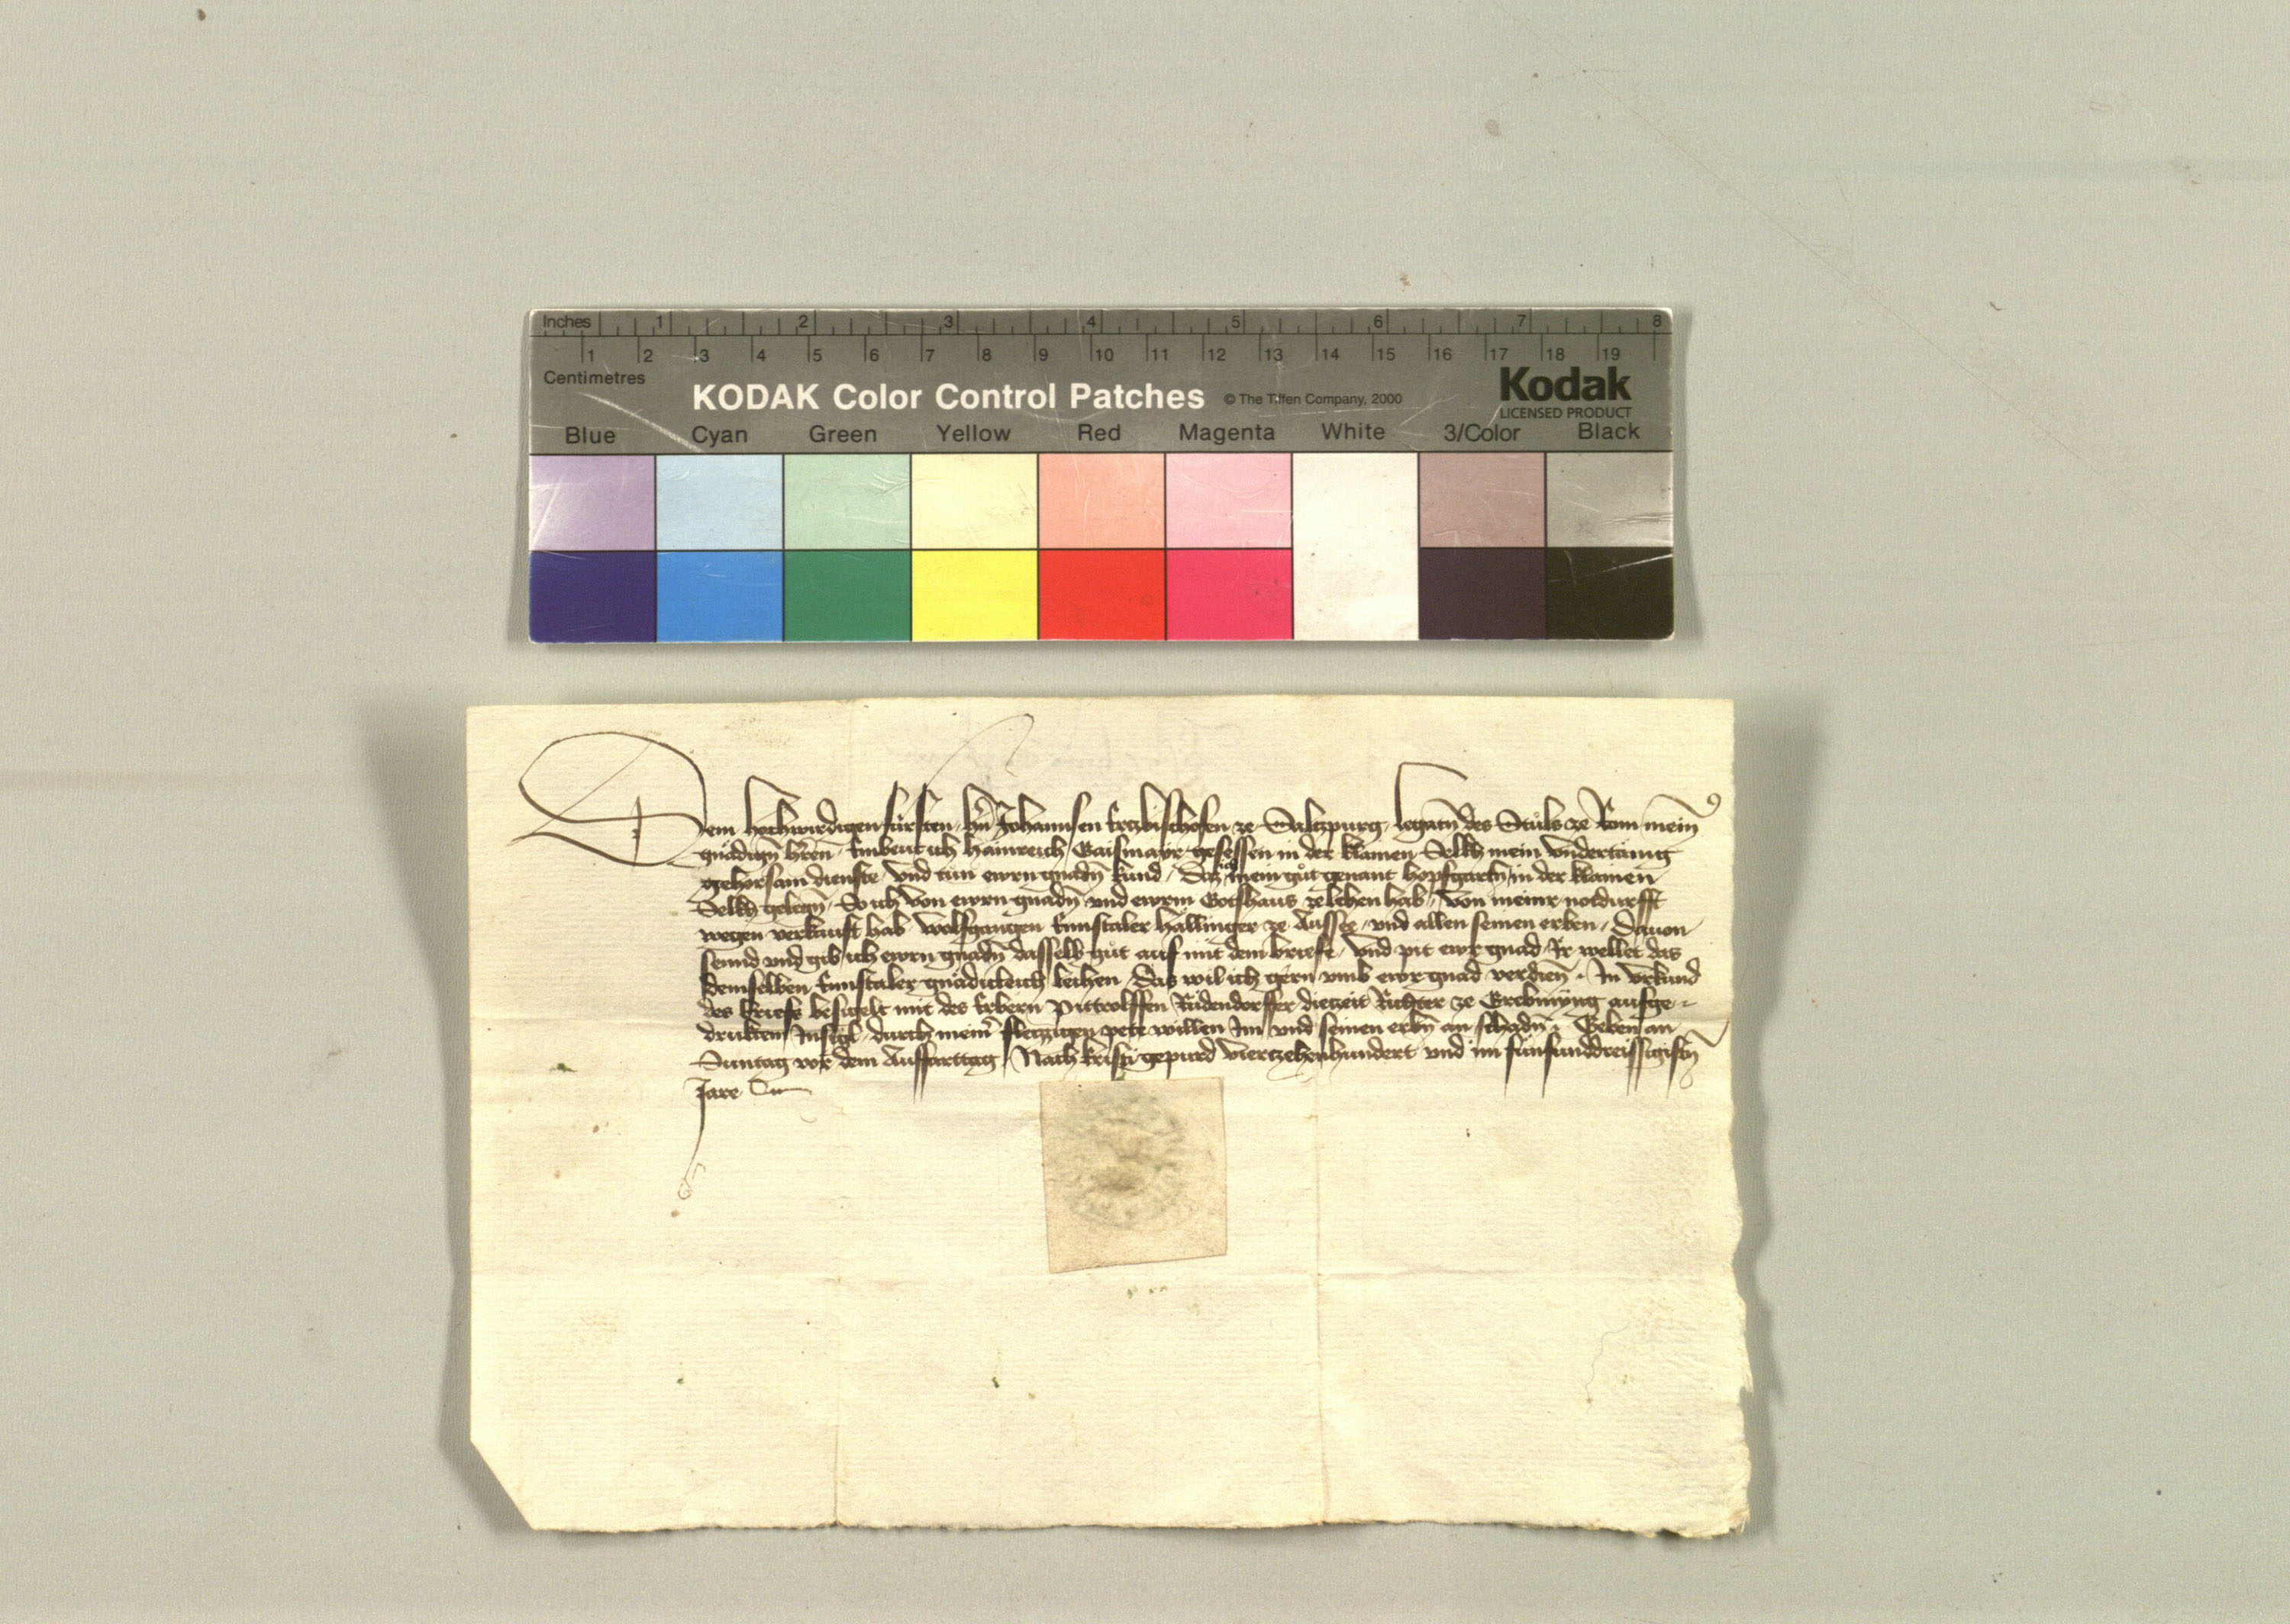 Inches 1 2 3 4 5 6 7 8
1 2 3 4 5 6 7 8 9 10 11 12 13 14 15 16 17 18 19
Centimetres
KODAK Color Control Patches © The Tiffen Company, 2000 Kodak
LICENSED PRODUCT
Blue Cyan Green Yellow Red Magenta White 3/Color Black
Dem hochwirdigen fürsten hn̄ Johannsen Ertzbischofen ze Saltzpurg legatn̄ des Stuls ze Rom mein̄
gnådign̄ hren̄ Embeut ich Hainreich Gaismayr gesessen in der klamen Selkch mein vndertånig
gehorsam dienste vnd tun ewrn gnadn̄ kund Daz ich mein gůt genant hopfgartn̄ in der klamen
Selkch gelegn̄ So ich von ewrn gnadn̄ vnd ewrm Gotshaus ze lehen hab von meinr notdurfft
wegen verkauft hab Wolfgangen Ennstaler Hållinger ze Aussee vnd allen seinen erben Dauon
sennd vnd gib ich ewrn gnadn̄ dasselb gůt auf mit dem briefe vnd pit ewr gnad Ir wellet das
demselben Ennstaler gnådicleich leihen Das wil ich gern vmb ewr gnad verdien̄ In vrkund
des briefs besigelt mit des Erbern Pittrolffen Rüdendorffer diezeit Richter ze Grebmyng aufge-
druktem Insigl durch mein̄ fletzzigen pete willen Im vnd seinen erbn̄ an schadn̄ Geben an
Suntag vor dem Auffarttag Nach kristi gepurd viertzehenhundert vnd im fünfunddreissigistn̄
Jare